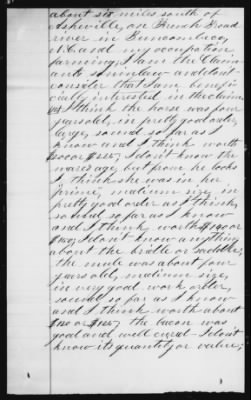 about six miles south of
Asheville, on French Broad
river in Buncombe Co,
N.C. and my occupation
farming, I am the Claim-
ants son in law and dont
consider that I am benefi-
cially interested in the claim
I think the horse was four
years old, in pretty good order
large, sound so far as I
know and I think worth
or I dont know the
mares age but from her looks
I think she was in her
prime, medium size, in
pretty good order as I think,
sound so far as I know
and I think worth $140 or
I dont know anything
about the bridle or saddle,
the mule was about four
years old, medium size,
in very good work order,
sound so far as I know
and I think worth about
or the bacon was
good and well cured - I dont
know its quantity or value;